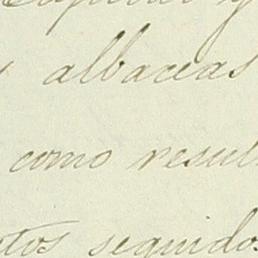 albaceas
como resul
tos seguidos